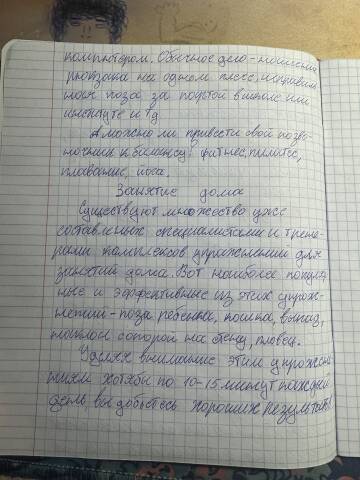 компьютером. Обычное дело - ношение
рюкзака на одном плесе, неправиль
ная поза за партой в школе или
институте и тд
А можно ли привести свой позво-
ночник к балансу: фитнес, пилатес,
плавание, йога.
Занятие дома
Существуют множество уже
составленных специалистами и трене-
рами комплексов упражнений для
занятий дома. Вот наиболее популяр
ные и эффективные из этих упраж-
нений - поза ребенка, кошка, выпад,
наклон с опорой на стену, пловец.
Уделяя внимание этим упражне
ниям хотябы по 10-15 минут каждый
день, вы добьетесь хороших результатов